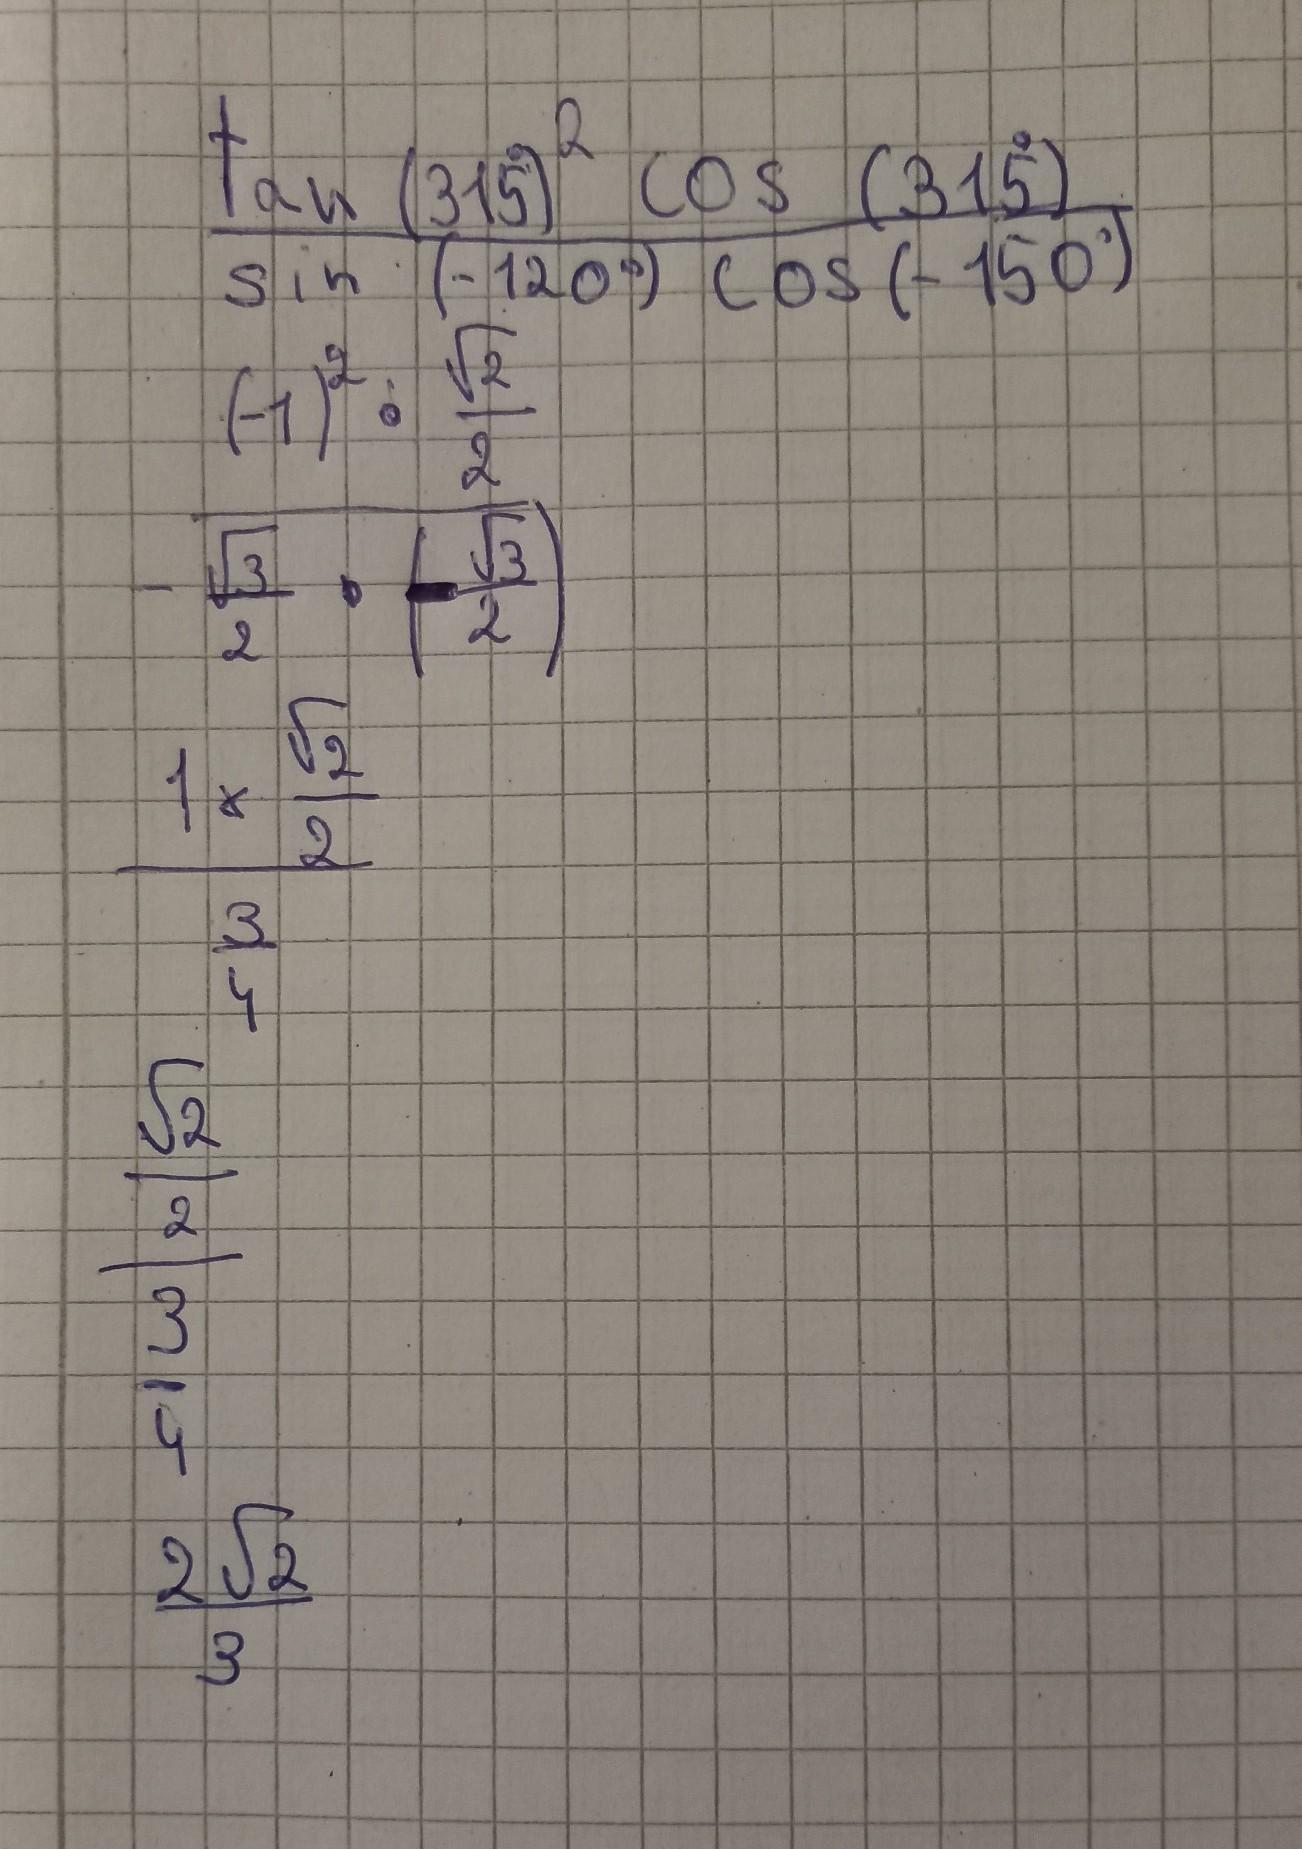 tan (315°)² cos (315°)
sin (-120°) cos (-150°)
(-1)² · √2
2
- √3 · (- √3)
2 2
1 × √2
2
3
4
√2
2
3
4
2√2
3